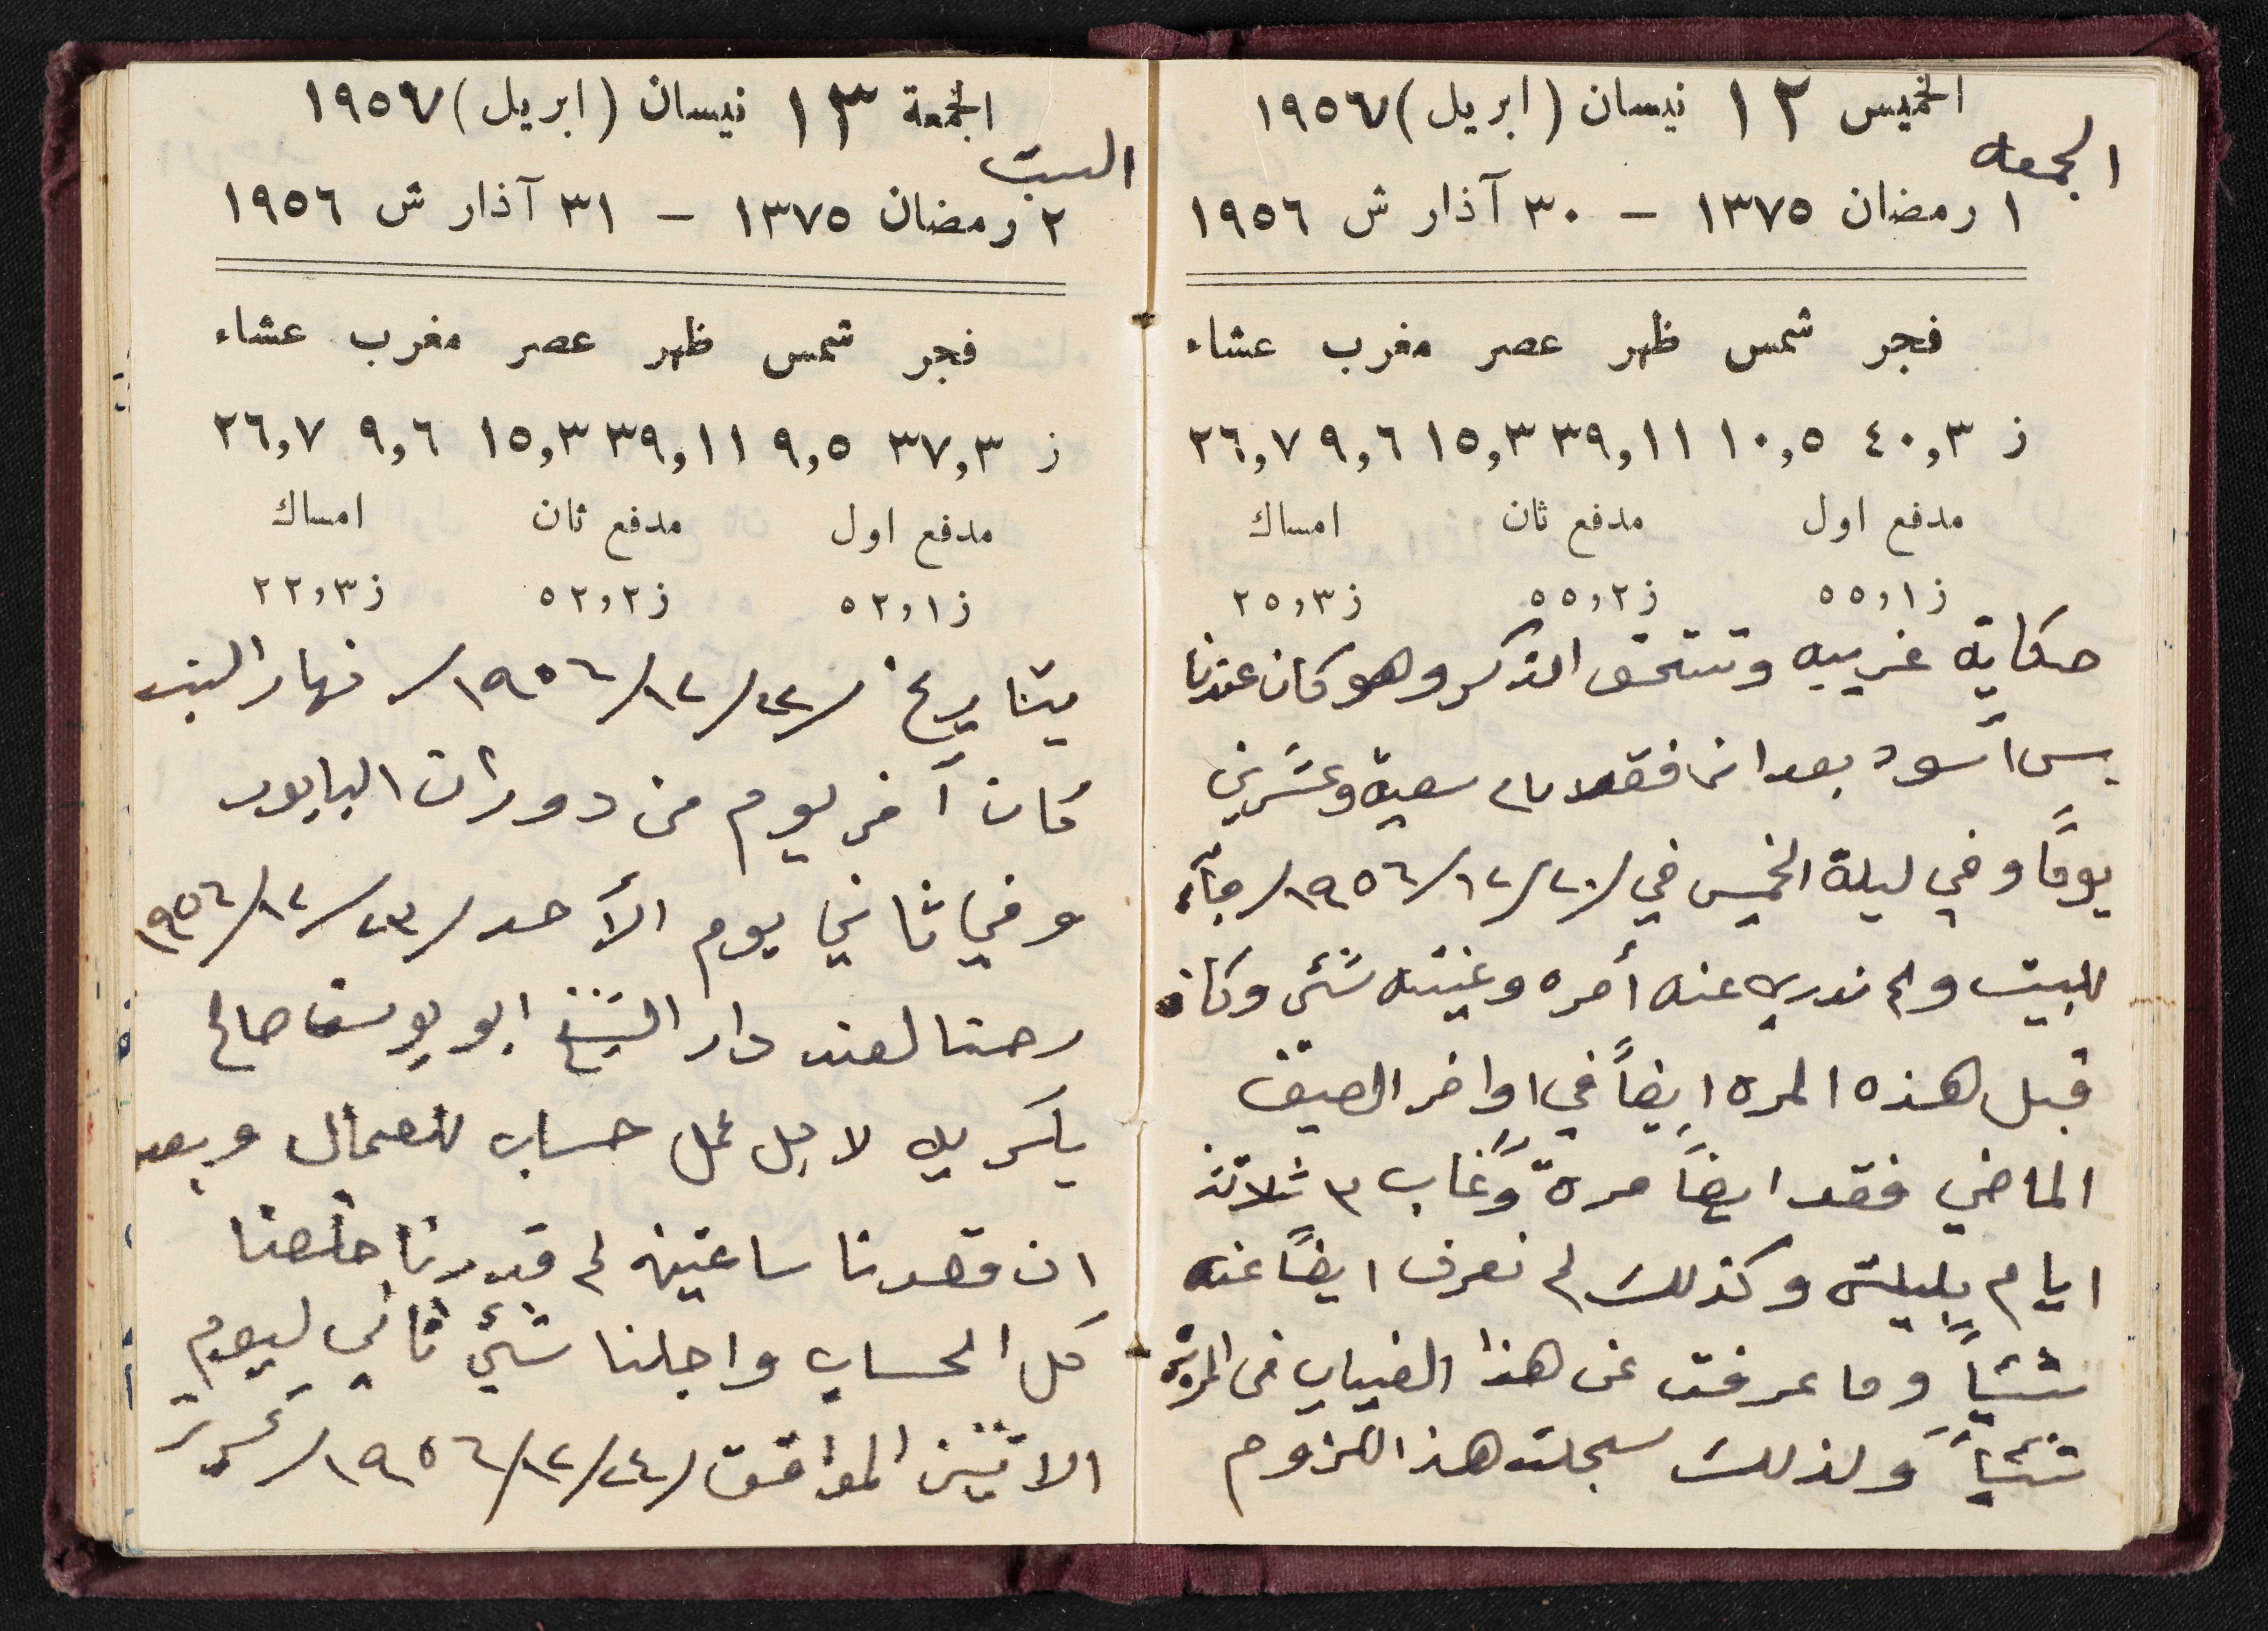 الخميس ١٢ نيسان (ابريل) ١٩٥٦٧
الجمعه
١ رمضان ١٣٧٥ – ٣٠ آذار ش ١٩٥٦
فجر شمس ظهر عصر مغرب عشاء
ز ٤٠,٣ ١٠,٥ ٣٩,١١ ١٥,٣ ٩,٦ ٢٦,٧
مدفع اول مدفع ثان امساك
ز ٥٥,١ ز ٥٥,٢ ز ٢٥,٣
حكاية غريبه وتستحق الذكر وهو كان عندنا
بس أسود بعد انه فقد سبعة وعشرين
يوماً وفي ليلة الخميس في /٢٠/١٢/١٩٥٦/ جآء
للبيت ولم ندري عنه أمره وغيبته شئ وكان
قبل هذه المره ايضاً في اواخر الصيف
الماضي فقد ايضاً مرةً وغاب ٣ ثلاثة
ايام بليلته وكذلك لم نعرف ايضاً عنه
شئياً وما عرفت عن هذا الغياب في المرة
شئياً ولذلك سجلت هذا اللزوم
الجمعة ١٣ نيسان (ابريل) ١٩٥٦٧
السبت
٢ رمضان ١٣٧٥ – ٣١ آذار ش ١٩٥٦
فجر شمس ظهر عصر مغرب عشاء
ز ٣٧,٣ ٩,٥ ٣٩,١١ ١٥,٣ ٩,٦ ٢٦,٧
مدفع اول مدفع ثان امساك
ز ٥٢,١ ز ٥٢,٢ ز ٢٢,٣
بتاريخ /٢٢/١٢/١٩٥٦/ نهار السبت
كان آخر يوم من دوران البابور
وفي ثاني يوم الأحد /٢٣/١٢/١٩٥٦
رحنا لعند دار الشيخ ابو يوسف صالح
لاجل عمل حساب للعمال وبعد
ان قعدنا ساعتين لم قدرنا خلصنا
كل الحساب واجلنا شئ ثاني ليوم
الاثنين الموافق /٢٤/١٢/١٩٥٦/